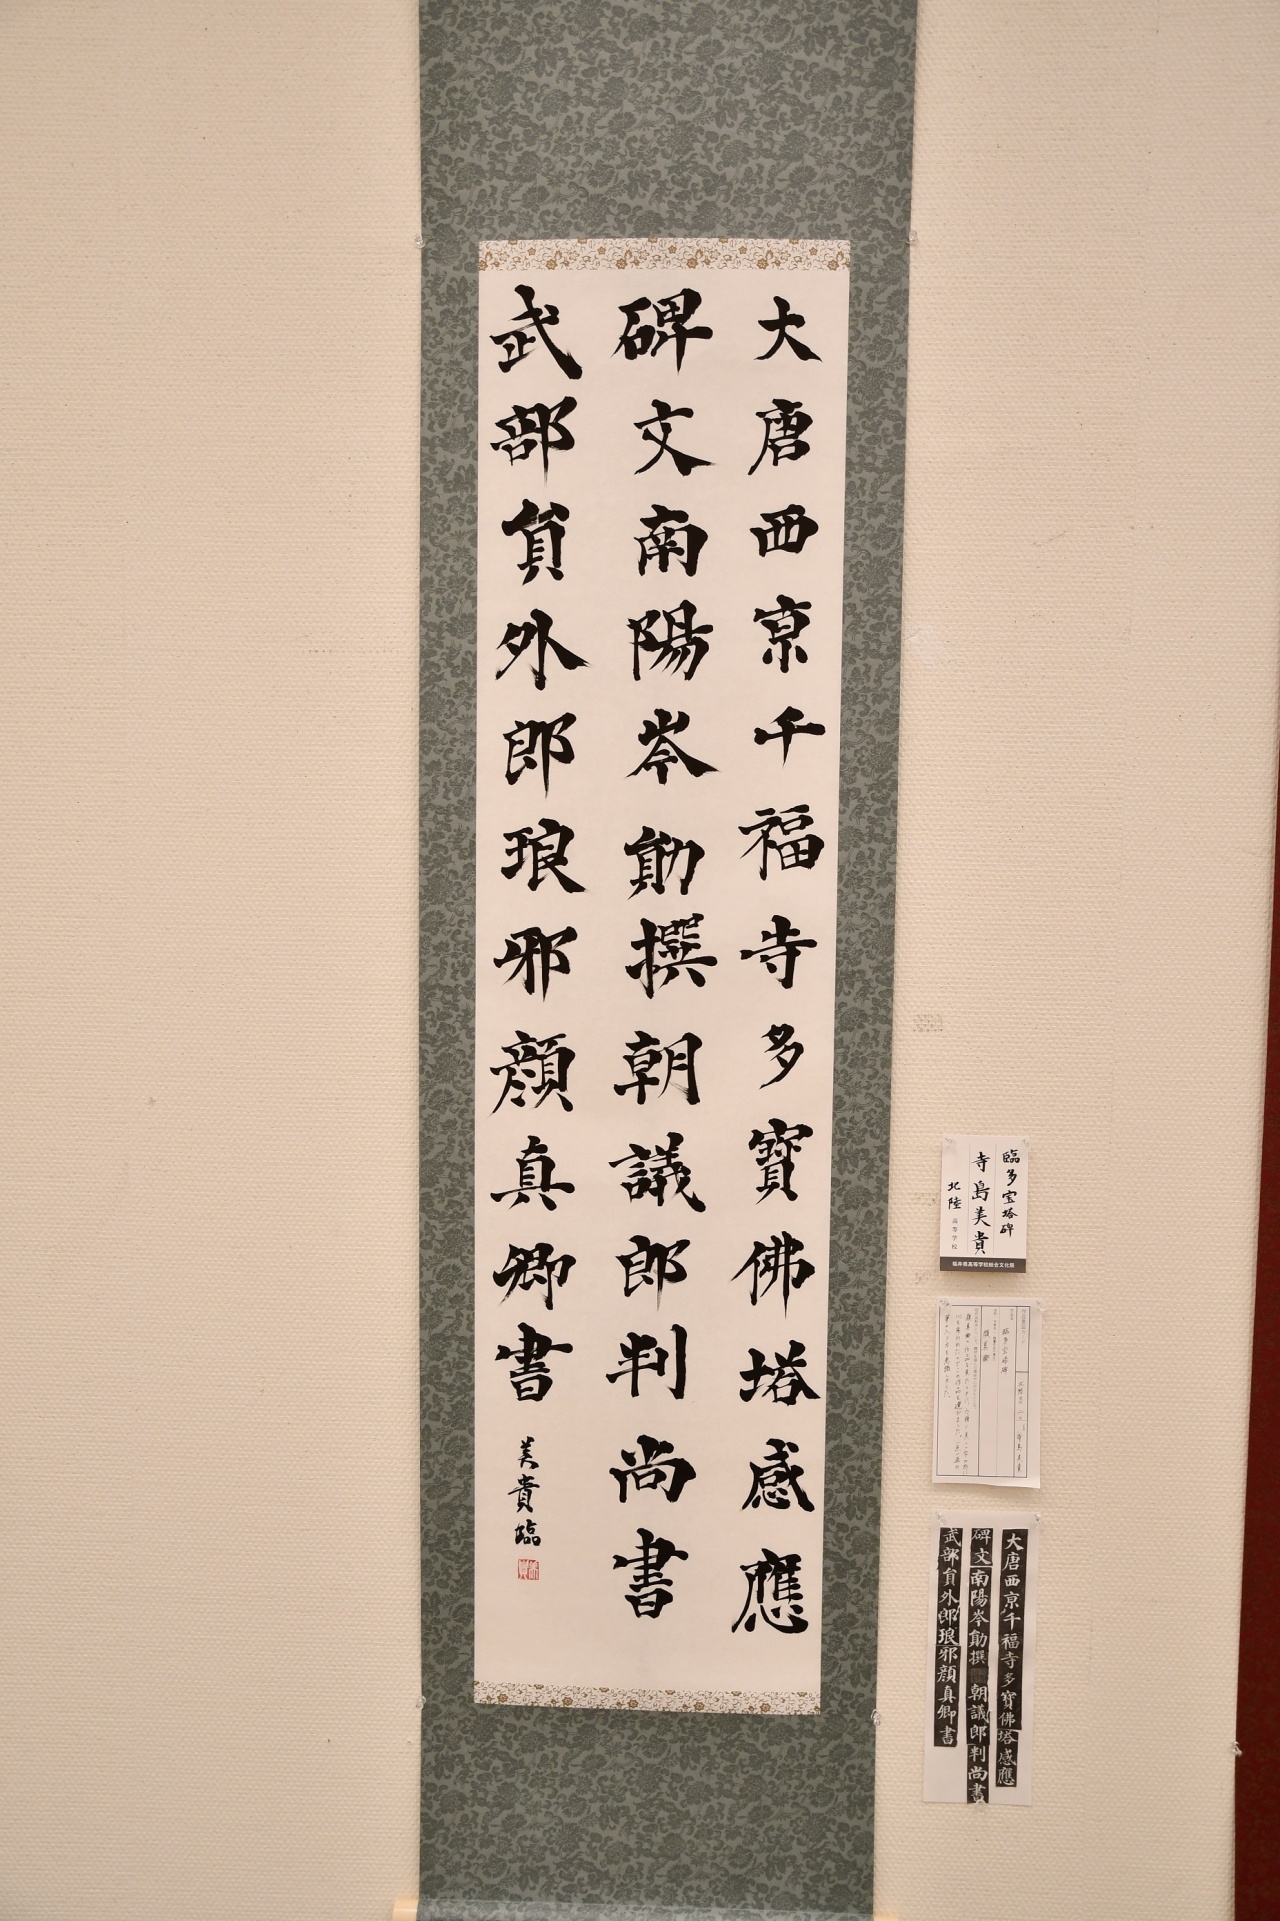 大唐西京千福寺多寶佛塔感應
碑文南陽岑勛撰朝議郎判尚書
武部貟外郎琅邪顔真卿書
美貴臨
臨多宝塔碑
寺島美貴
北陸高等学校
福井県高等学校総合文化祭
臨多宝塔碑
顔真卿
大唐西京千福寺多寶佛塔感應
碑文南陽岑勛撰朝議郎判尚書
武部貟外郎琅邪顔真卿書